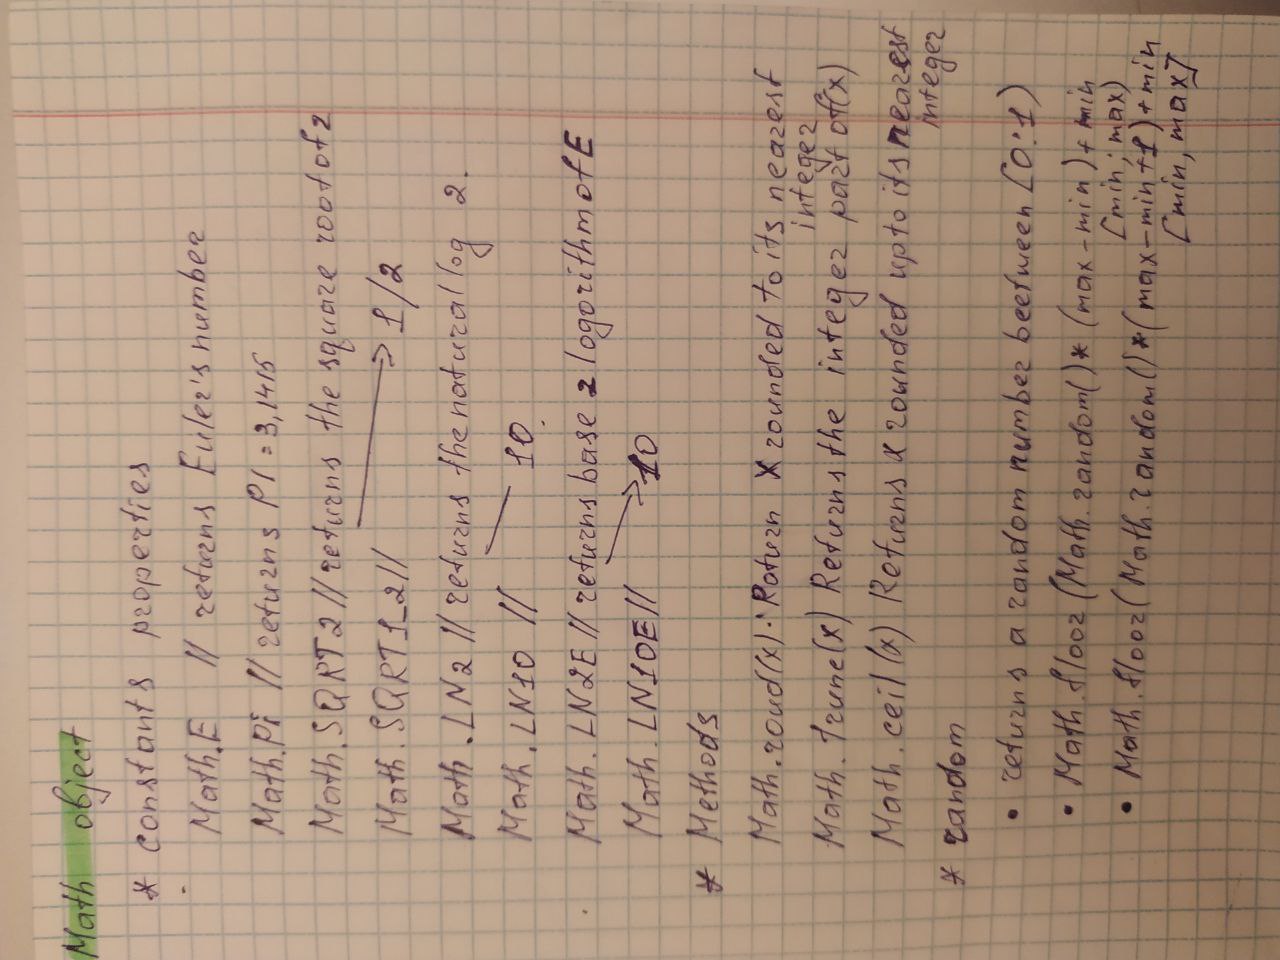 Math object
* constants properties
Math.E // returns Euler's number
Math.Pi // returns PI = 3,1415
Math.SQRT2 // returns the square root of 2
Math.SQRT1_2 // → 1/2
Math.LN2 // returns the natural log 2.
Math.LN10 // — 10.
Math.LN2E // returns base 2 logorithm of E
Math.LN10E // → 10
* Methods
Math.round(x). Return x rounded to its nearest
integer
Math.trunc(x) Returns the integer part of(x)
Math.ceil(x) Returns x rounded up to its nearest
integer
* random
• returns a random number beetween [0:1)
• Math.floor(Math.random()*(max-min)+min
[min; max)
• Math.floor(Math.random()*(max-min+1)+min
[min, max]